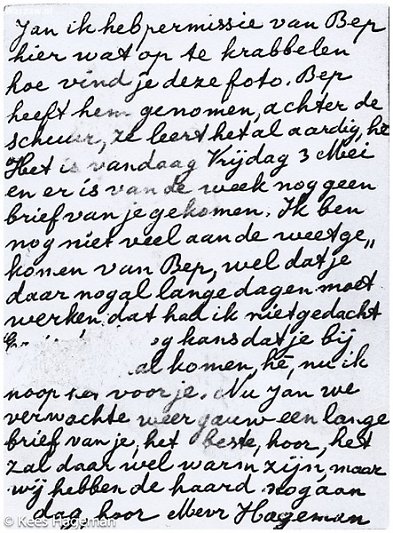 Jan ik heb permissie van Bep
hier wat op te krabbelen
hoe vind je deze foto. Bep
heeft hem genomen, achter de
schuur, ze leert het al aardig, hè
Het is vandaag Vrijdag 3 Mei
en er is van de week nog geen
brief van je gekomen. Ik ben
nog niet veel aan de weet ge„
komen van Bep, wel dat je
daar nogal lange dagen moet
werken, dat had ik niet gedacht
kans dat je bij
komen, hè, nu ik
voor je. Nu Jan we
verwachte weer gauw een lange
brief van je, het beste, hoor, het
zal daar wel warm zijn, maar
wij hebben de haard nog aan
dag hoor Mevr Hageman
© Kees Hageman